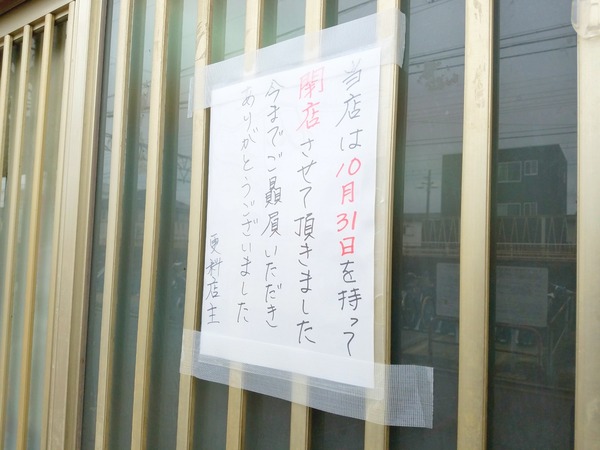 当店は10月31日を持って
閉店させて頂きました
今までご贔屓いただき
ありがとうございました
更科店主